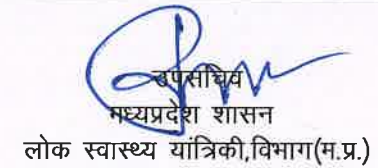 उपसचिव
मध्यप्रदेश शासन
लोक स्वास्थ्य यांत्रिकी,विभाग(म.प्र.)